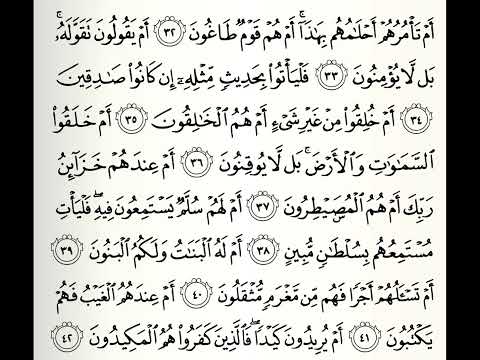 أَمْ تَأْمُرُهُمْ أَحْلَٰمُهُم بِهَٰذَآ ۚ أَمْ هُمْ قَوْمٌ طَاغُونَ ٣٢ أَمْ يَقُولُونَ تَقَوَّلَهُۥ ۚ
بَل لَّا يُؤْمِنُونَ ٣٣ فَلْيَأْتُوا۟ بِحَدِيثٍ مِّثْلِهِۦٓ إِن كَانُوا۟ صَٰدِقِينَ
٣٤ أَمْ خُلِقُوا۟ مِنْ غَيْرِ شَىْءٍ أَمْ هُمُ ٱلْخَٰلِقُونَ ٣٥ أَمْ خَلَقُوا۟
ٱلسَّمَٰوَٰتِ وَٱلْأَرْضَ ۚ بَل لَّا يُوقِنُونَ ٣٦ أَمْ عِندَهُمْ خَزَآئِنُ
رَبِّكَ أَمْ هُمُ ٱلْمُصَۜيْطِرُونَ ٣٧ أَمْ لَهُمْ سُلَّمٌ يَسْتَمِعُونَ فِيهِ ۖ فَلْيَأْتِ
مُسْتَمِعُهُم بِسُلْطَٰنٍ مُّبِينٍ ٣٨ أَمْ لَهُ ٱلْبَنَٰتُ وَلَكُمُ ٱلْبَنُونَ ٣٩
أَمْ تَسْـَٔلُهُمْ أَجْرًا فَهُم مِّن مَّغْرَمٍ مُّثْقَلُونَ ٤٠ أَمْ عِندَهُمُ ٱلْغَيْبُ فَهُمْ
يَكْتُبُونَ ٤١ أَمْ يُرِيدُونَ كَيْدًا ۖ فَٱلَّذِينَ كَفَرُوا۟ هُمُ ٱلْمَكِيدُونَ ٤٢